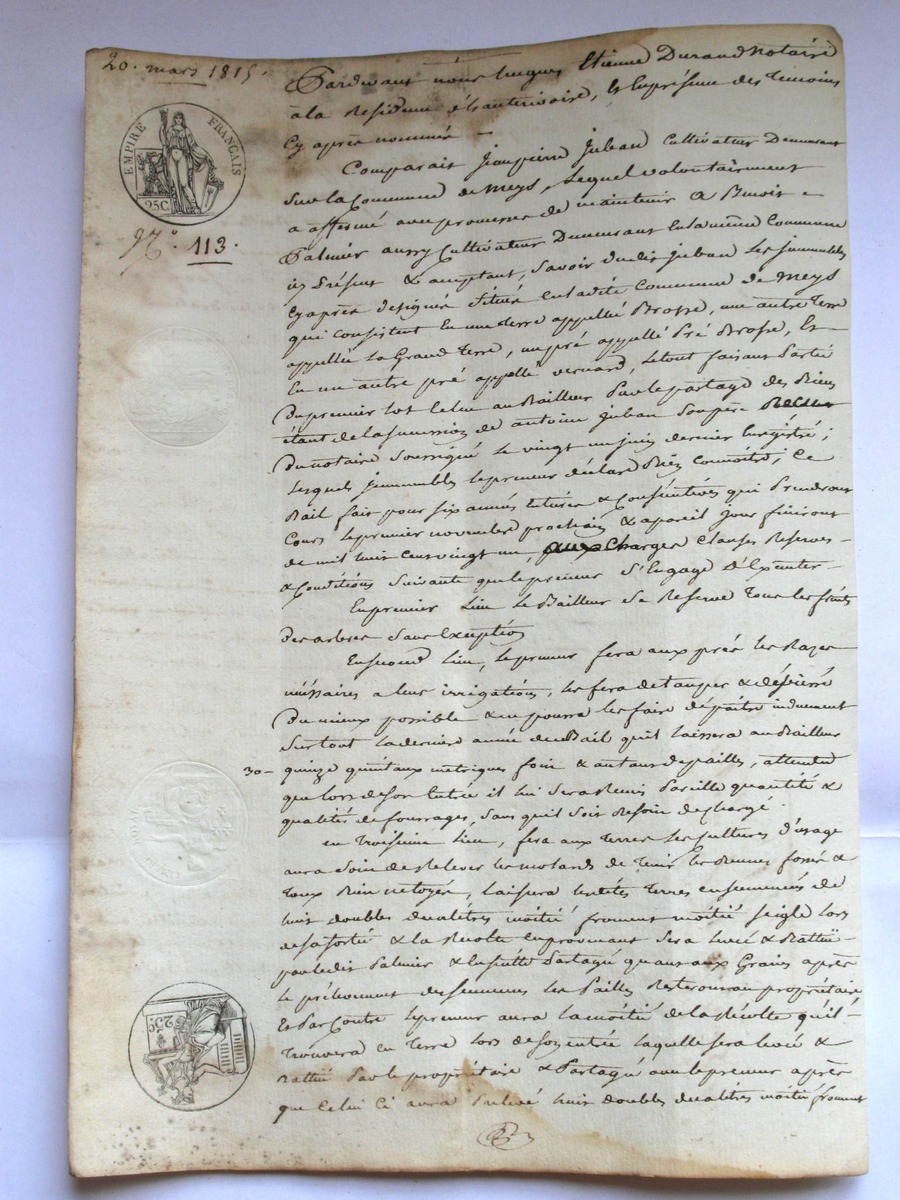 20. mars 1815.
EMPIRE FRANÇAIS
25C
N.o 113.
Pardevant nous Etienne Durand Notaire
à la Residence de, et en présence des Temoins
Cy après nommés
Comparait Jeanpierre Juban Cultivateur Demeurant
Sur la Commune de Meys, Lequel volontairement
a affermé avec promesse de maintenir a Benoit
Palmier aussy Cultivateur Demeurant en la même Commune
icy Présent & acceptant, Savoir du dit Juban Les jmmeubles
Cy après designés Situés en la dite Commune de Meys
qui consistent En une terre appellée Brosse, une autre Terre
appellée La Grand Terre, un pré appellé Pré Brosse, Et
En un autre pré appellé vernard, Le tout faisant Partie
Du premier Lot Echu au Bailleur Par le partage des Biens
étant de la Succession de antoine Juban Son père
Du notaire Soussigné Le vingt un juin dernier Enregistré;
Lesquels jmmeubles Le preneur déclare Bien Connoitre; Ce
Bail fait pour six années Entières & Consécutives qui Prendront
Cours Le premier novembre prochain & a pareil jour finiront
de mil huit Cent vingt un, aux Charges Clauses Reserves
& Conditions Suivante que le preneur S'Engage D'Executer
En premier Lieu Le Bailleur Se Reserve Tous Les fruits
Des arbres Sans Exception
En second Lieu, Le preneur fera aux prés Les Razes
nécessaires a Leur irrigation, Les fera détauper & dépierré
Du mieux possible & ne pourra Les faire dépaître induement
Surtout La derniere année du Bail qu'il Laissera au Bailleur
30 - quinze quintaux métriques foin & autant de pailles, attendu
que Lors de Son Entrée il Lui Sera Remis Pareille quantité &
qualités de fourrages, Sans quil Soit Besoin de Charge
En Troisieme Lieu, fera aux Terres Les Cultures d'usage
aura Soin de Relever Les motards de Tenir Les Rennes fossés &
Tout Bien netoyer, Laissera Lesdites Terres ensemencés de
huit doubles decalitres moitié froment moitié seigle Lors
de sa Sortie & La Recolte en provenant Sera Levée & Battüe
par ledit Palmier & Ensuitte Partagé quant aux Grains après
Le prélevement des Semences Les Pailles Resteront au propriétaire
Et Par Contre Le preneur aura La moitié de La Récolte qu'il
Trouvera en Terre Lors de Son entrée Laquelle Sera Levée &
Battüe Par Le propriétaire & Partagé avec Le preneur après
que Celui Ci aura Prélevé huit doubles decalitres moitié froment
25C